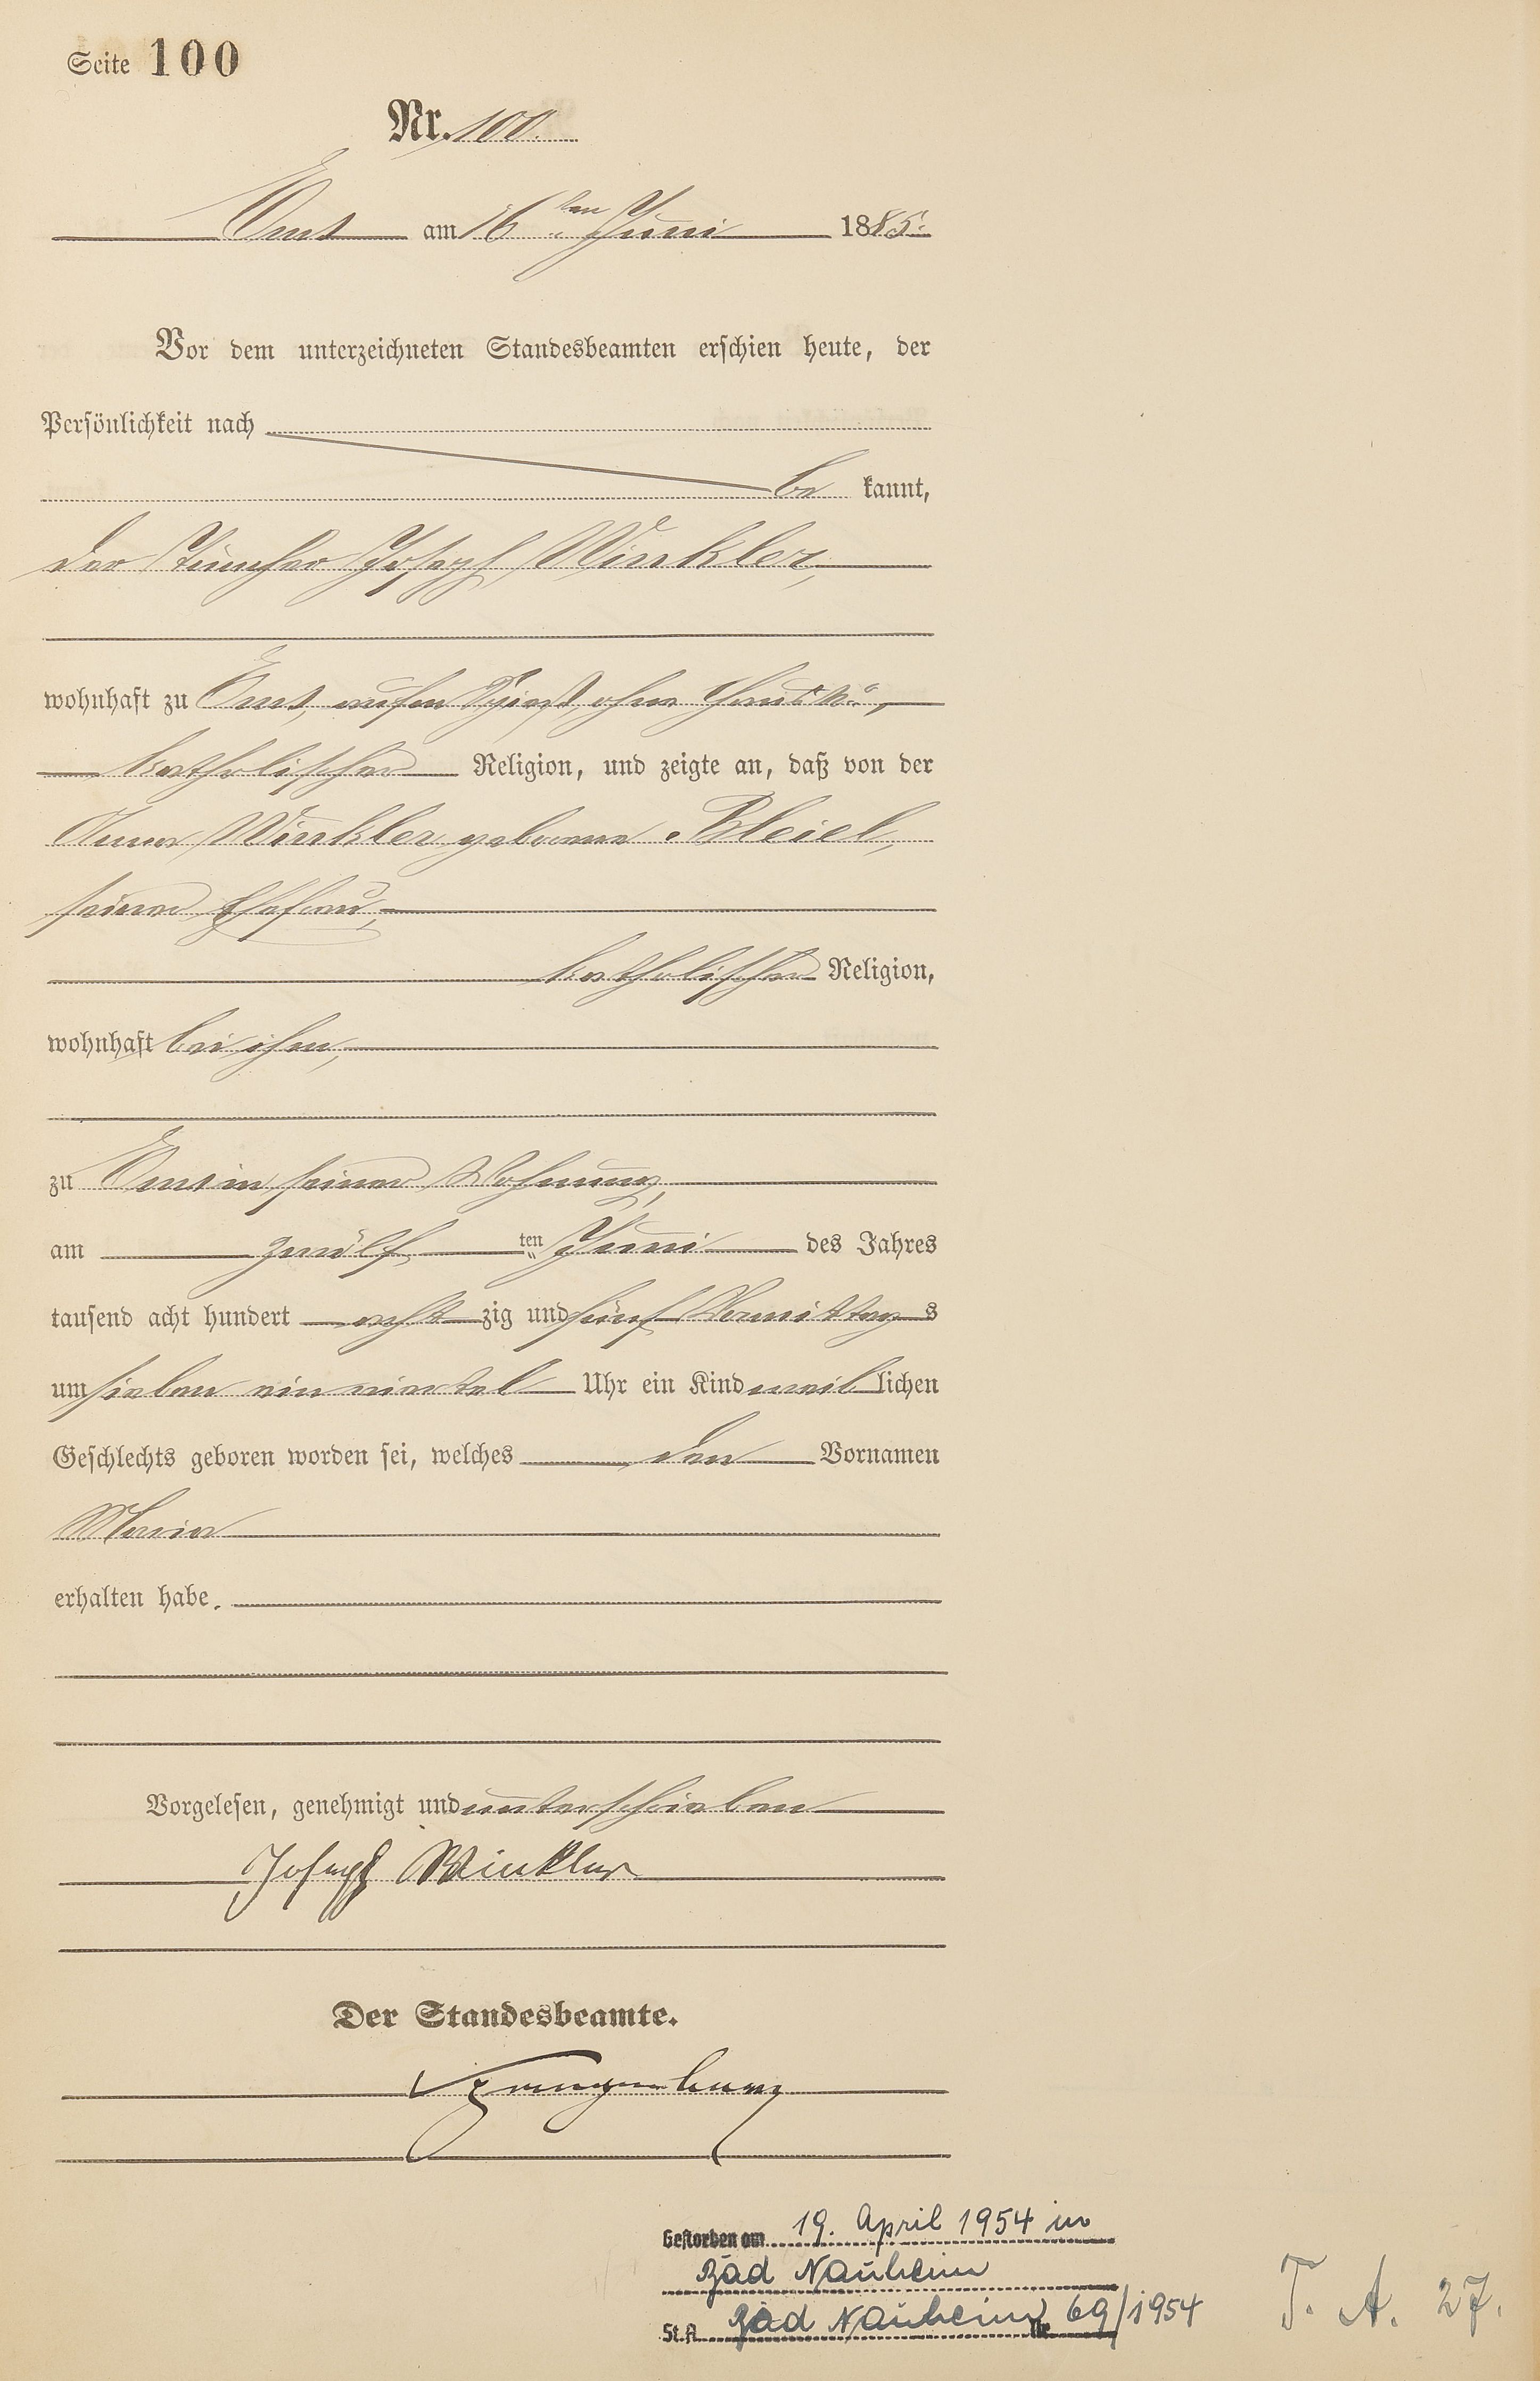 Seite 100
Nr. 100.
Ems am 16ten Juni 1885.
Vor dem unterzeichneten Standesbeamten erschien heute, der
Persönlichkeit nach
be kannt,
der Tüncher Joseph Winkler,
wohnhaft zu Ems, auf'm Spieß, ohne Haus No.,
katholischer Religion, und zeigte an, daß von der
Anna Winkler geborene Bleiel,
seiner Ehefrau,
katholischer Religion,
wohnhaft bei ihm,
zu Ems in seiner Wohnung,
am zwölf ten Juni des Jahres
tausend acht hundert acht zig und fünf Vormittag s
um sieben ein viertel Uhr ein Kind weib lichen
Geschlechts geboren worden sei, welches den Vornamen
Maria
erhalten habe.
Vorgelesen, genehmigt und unterschrieben
Joseph Winkler
Der Standesbeamte.
Gestorben am 19. April 1954 in
Bad Nauheim
St.A. Bad Nauheim Nr. 69/1954
T. A. 27.